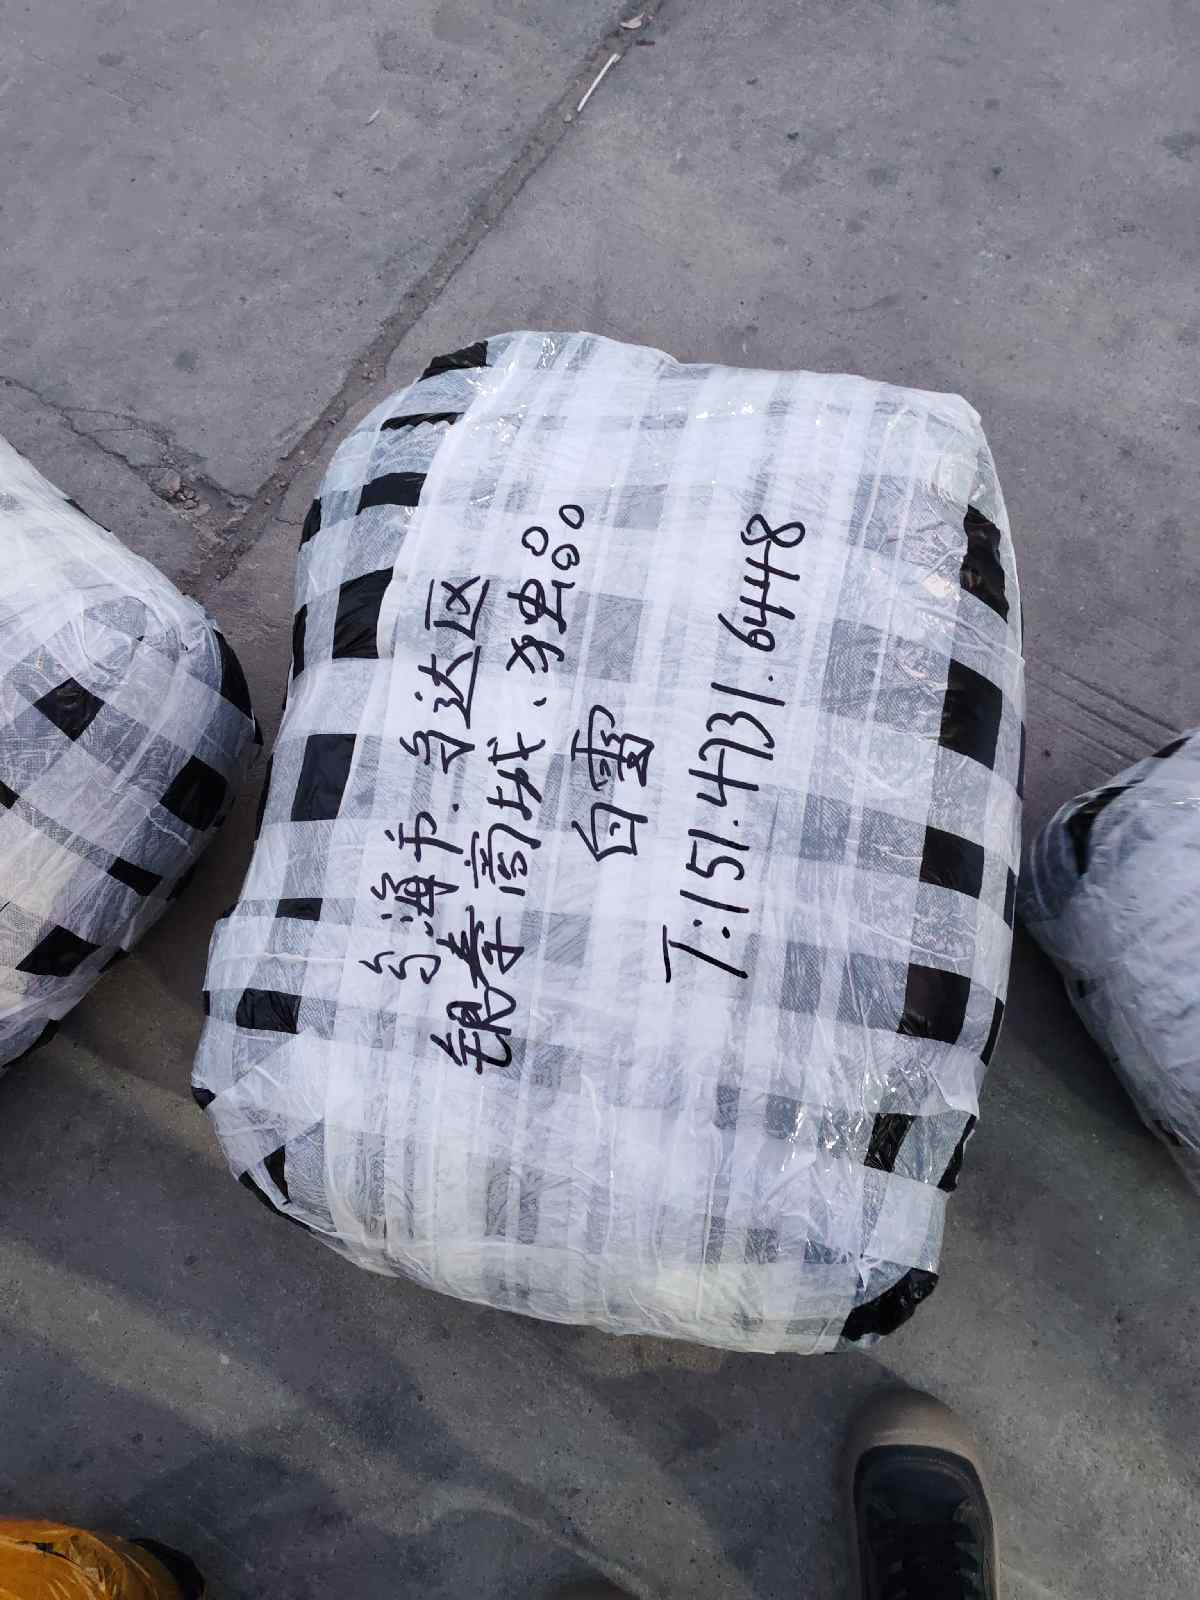 乌海市.乌达区
银泰商城、独品。
白雪
T:151.4731.6448